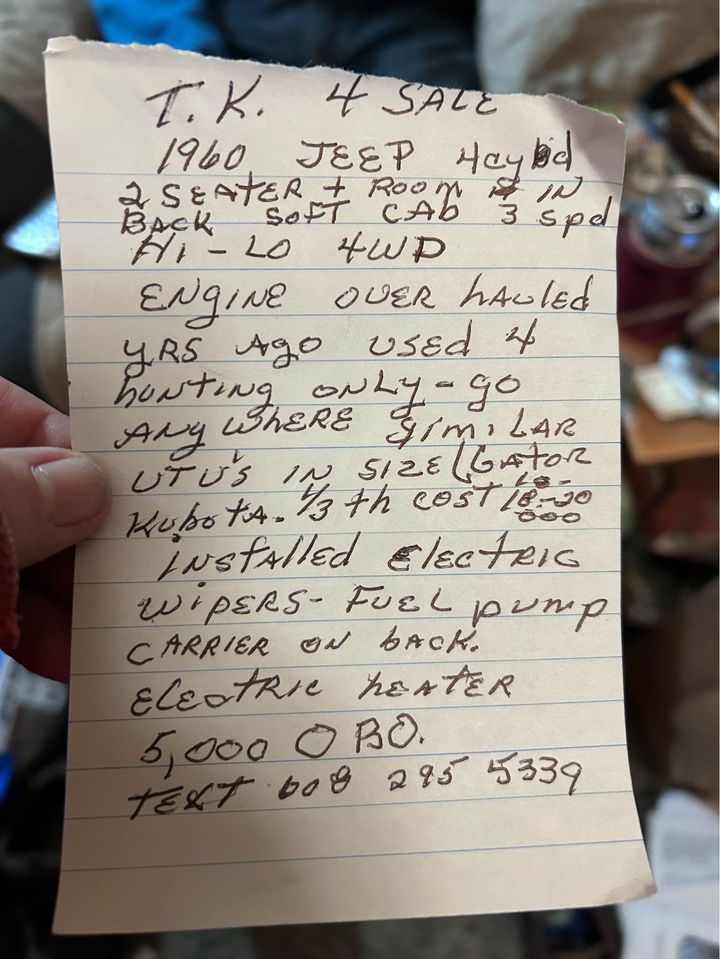 T.K. 4 SALE
1960 JEEP 4cyld
2 SEATER + ROOM IN
BACK SOFT CAb 3 spd
Hi - LO 4WD
ENgINE OVER hAuled
YRS Ago USEd 4
hUNTiNg ONLy - go
ANywhERE SimiLAR
UTU'S IN SIZE (GATOR
KubotA. 1/3 th COST 18-20
000
iNSTAllEd ElECTRIC
WipERS - FUEL pump
CARRIER ON bACK.
ElEcTRIC hEATER
5,000 OBO.
TEXT 608 295 5339